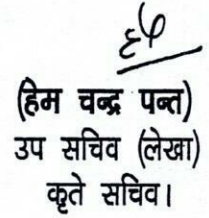 (हिम चन्द्र पन्त)
उप सचिव (लेखा)
कृते सचिव।